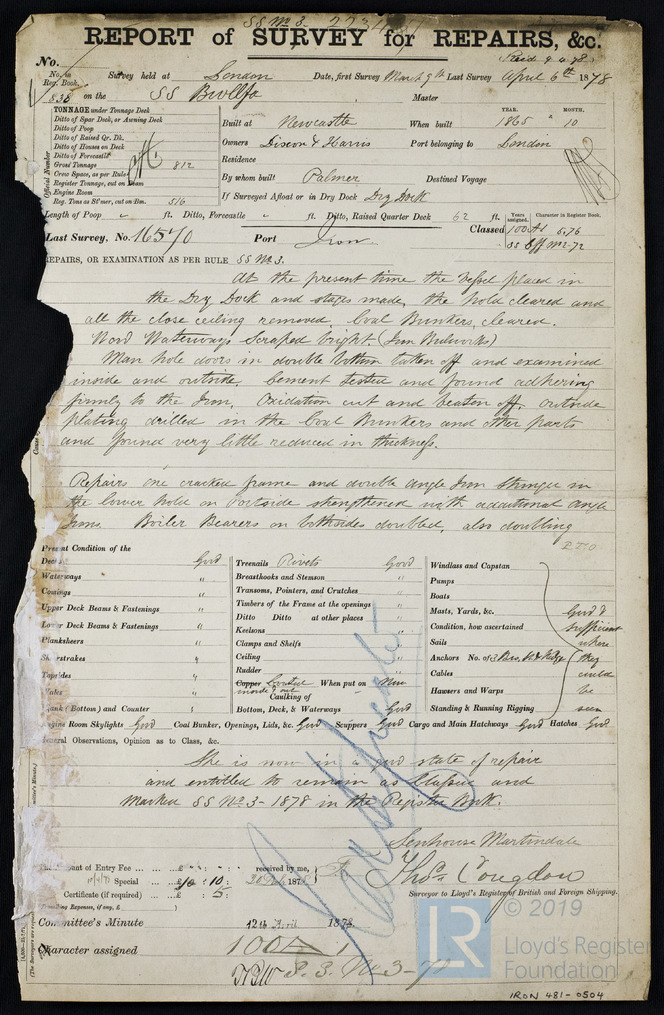 SS No. 3.
REPORT OF SURVEY for REPAIRS, &c.
No.
Rec'd 9.4.78
No. in Reg. Book. Survey held at London Date, first Survey March 9th Last Survey April 6th 1878
838 on the SS Master
TONNAGE under Tonnage Deck
Ditto of Spar Deck, or Awning Deck
Ditto of Poop
Ditto of Raised Qr. Dk.
Ditto of Houses on Deck
Ditto of Forecastle
Gross Tonnage 812
Crew Space, as per Rule
Register Tonnage, cut on Beam
Engine Room
Reg. Tons as St'mer, cut on Bm. 516
Official Number
YEAR. MONTH.
Built at Newcastle When built 1865 " 10
Owners Dixon & Harris Port belonging to London
Residence
By whom built Palmer Destined Voyage
If Surveyed Afloat or in Dry Dock Dry Dock
Length of Poop " ft. Ditto, Forecastle " ft. Ditto, Raised Quarter Deck 62 ft.
Years assigned. Character in Register Book.
Last Survey, No. 16570 Port Iron Classed 100 A1 5,76
SS Off No 2-72
REPAIRS, OR EXAMINATION AS PER RULE SS No 3.
At the present time the Vessel placed in
the Dry Dock and stages made, the hold cleared and
all the close ceiling removed. Coal Bunkers, cleared.
Wood Waterways Scraped bright (Iron Bulwarks)
Man hole doors in double bottom taken off and examined
inside and outside, Cement tested and found adhering
firmly to the Iron. Oxidation cut and beaten off, outside
plating drilled in the Coal Bunkers and other parts
and found very little reduced in thickness.
Repairs one cracked frame and double angle Iron Stringer in
the lower hold on Portside strengthened with additional angle
Irons. Boiler Bearers on bothsides doubled, also doubling
Present Condition of the
Decks Good
Waterways "
Comings "
Upper Deck Beams & Fastenings "
Lower Deck Beams & Fastenings "
Planksheers "
Sheerstrakes "
Topsides "
Wales "
Plank (Bottom) and Counter "
Treenails Rivets Good
Breasthooks and Stemson "
Transoms, Pointers, and Crutches "
Timbers of the Frame at the openings "
Ditto Ditto at other places "
Keelsons "
Clamps and Shelfs "
Ceiling "
Rudder "
Copper Coated inside & out When put on Now
Caulking of
Bottom, Deck, & Waterways Good
Windlass and Capstan
Pumps
Boats
Masts, Yards, &c.
Condition, how ascertained
Sails
Anchors No. of
Cables
Hawsers and Warps
Standing & Running Rigging
Good & sufficient where they could be seen
Engine Room Skylights Good Coal Bunker, Openings, Lids, &c. Good Scuppers Good Cargo and Main Hatchways Good Hatches Good
General Observations, Opinion as to Class, &c.
She is now in a good state of repair
and entitled to remain as Classed and
marked SS No 3-1878 in the Register Book.
Senhouse Martindale
Thos. Congdon
Surveyor to Lloyd's Register of British and Foreign Shipping.
The amount of Entry Fee ... £ " : " : received by me,
Special ... £10 : 10 : 1878
Certificate (if required) ... £ : 5
Travelling Expenses, if any, £
Committee's Minute 12th April 1878.
Character assigned 100A1
S.S. No 3-78
© 2019
LR
Lloyd's Register
Foundation
IRON 481-0504